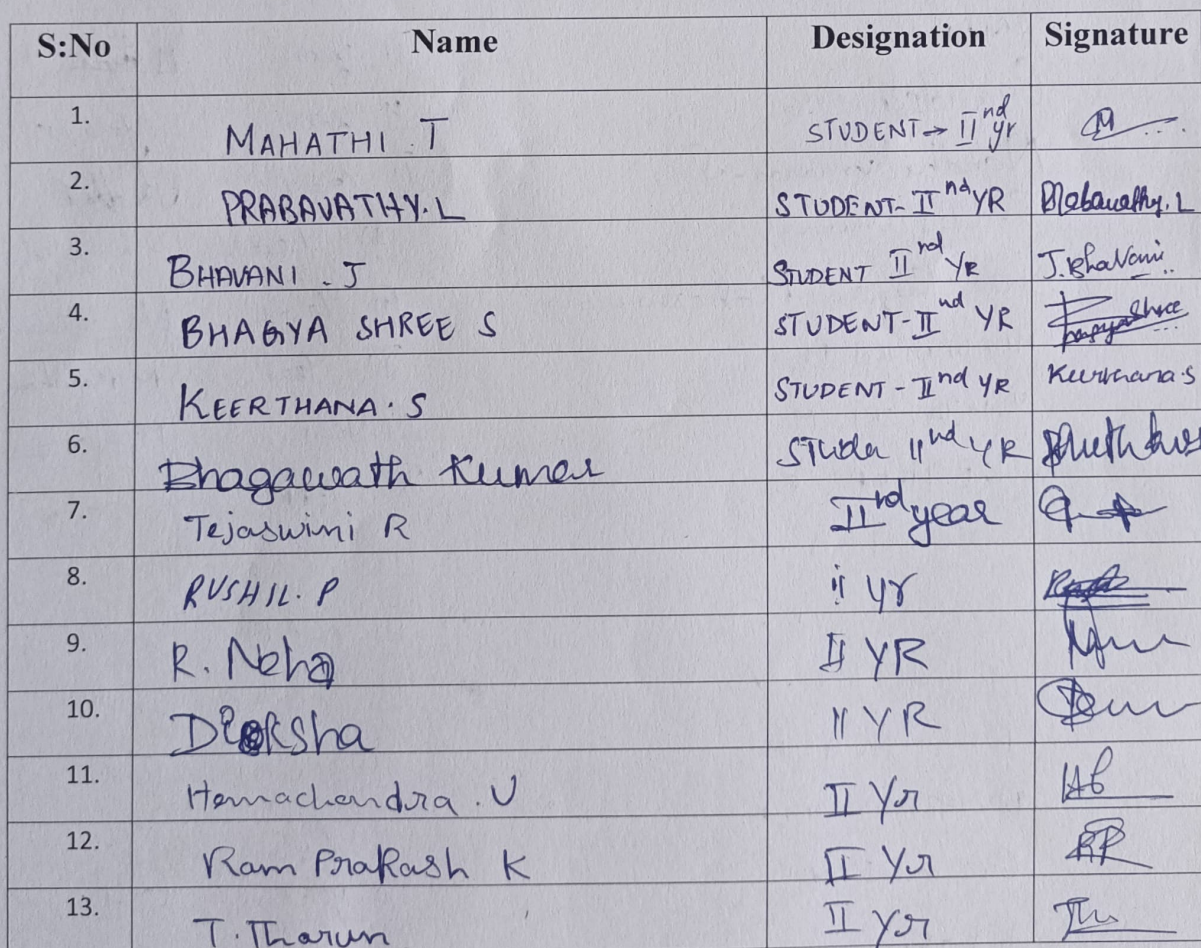 S:No Name Designation Signature
1. MAHATHI . T STUDENT → II nd yr M
2. PRABAVATHY. L STUDENT - II nd YR Prabavathy. L
3. BHAVANI . J STUDENT II rd YR J. BhaVani
4. BHAGYA SHREE S STUDENT - II nd YR
5. KEERTHANA . S STUDENT - II nd YR Keerthana. S
6. Bhagawath Kumar STUda II nd YR
7. Tejaswini R II rd year
8. RUSHIL. P ii yr
9. R. Neha II YR
10. Diksha II YR
11. Hemachandra . U II Yr
12. Ram Prakash K II Yr
13. T. Tharun II Yr